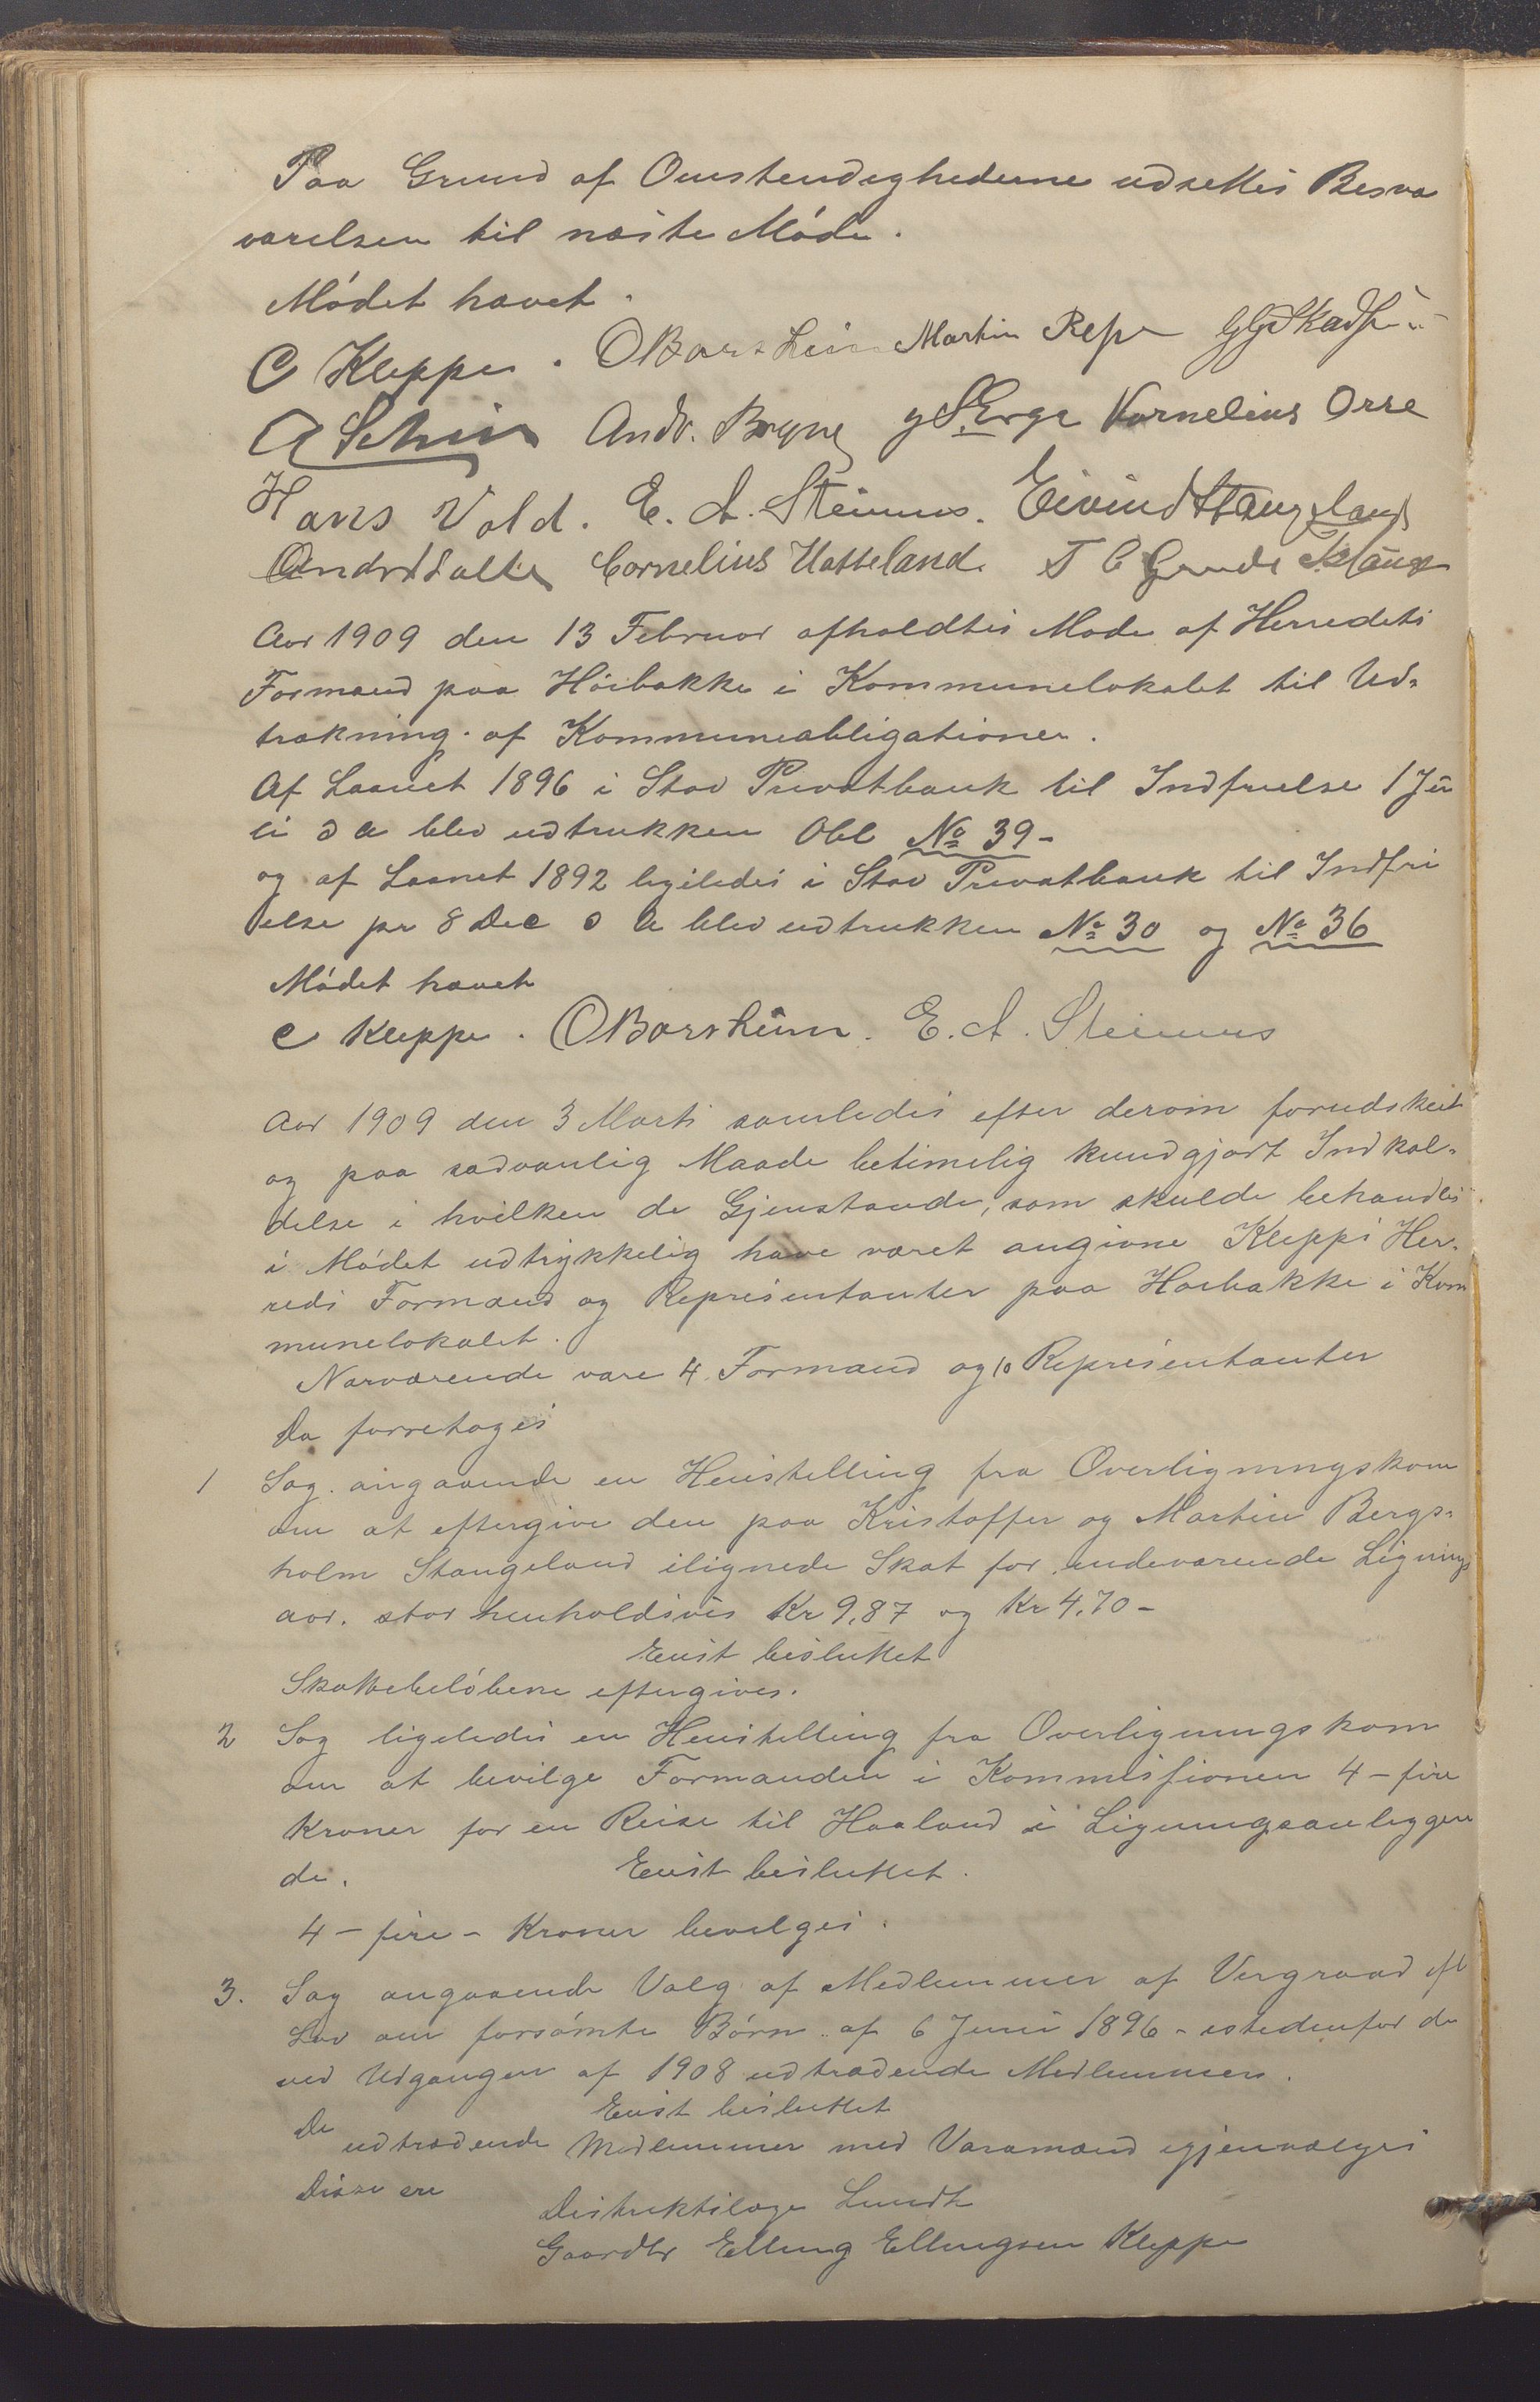 Paa Grund af Omstendighederne udsættes Besva
varelsen til næste Møde.
Mødet hævet.
C Kleppe. O Borsheim Martin Reppe
Andr. Bryne Erga Kornelius Orre
Hans Vold. E. A. Steinnes. Eivind Stangeland
Cornelius Hatteland.
Aar 1909 den 13 Februar afholdtes Møde af Herredets
Formænd paa Høibakke i Kommunelokalet til Ud-
trækning af Kommuneobligationer.
Af Laanet 1896 i Stav Privatbank til Indfrielse 1 Ju
li d a blev udtrukken Obl No 39-
og af Laanet 1892 ligeledes i Stav Privatbank til Indfri
else pr 8 Dec d a blev udtrukken No 30 og No 36
Mødet hævet
C Kleppe. O Borsheim. E. A. Steinnes
Aar 1909 den 3 Marts samledes efter derom forudskeet
og paa sædvanlig Maade betimelig kundgjort Indkal-
delse i hvilken de Gjenstande, som skulde behandles
i Mødet udtrykkelig have været angivne Klepps Her-
reds Formænd og Repræsentanter paa Høibakke i Kom
munelokalet.
Nærværende vare 4 Formænd og 10 Repræsentanter
Da foretoges
1 Sag angaaende en Henstilling fra Overligningskom
om at eftergive den paa Kristoffer og Martin Bergs-
holm Stangeland ilignede Skat for indeværende Lignings
aar. stor henholdsvis Kr 9,87 og Kr 4,70-
Enst besluttet
Skattebeløbene eftergives.
2 Sag ligeledes en Henstilling fra Overligningskom
om at bevilge Formanden i Kommissionen 4 - fire
Kroner for en Reise til Haaland i Ligningsanliggen
de. Enst besluttet.
4 - fire - Kroner bevilges.
3. Sag angaaende Valg af Medlemmer af Vergraad eft
Lov om forsømte Børn af 6 Juni 1896 - istedenfor de
ved Udgangen af 1908 udtrædende Medlemmer.
Enst besluttet
De udtrædende Medlemmer med Varamænd igjenvælges
Disse ere
Distriktslæge Lundh
Gaardbr Elling Ellingsen Kleppe